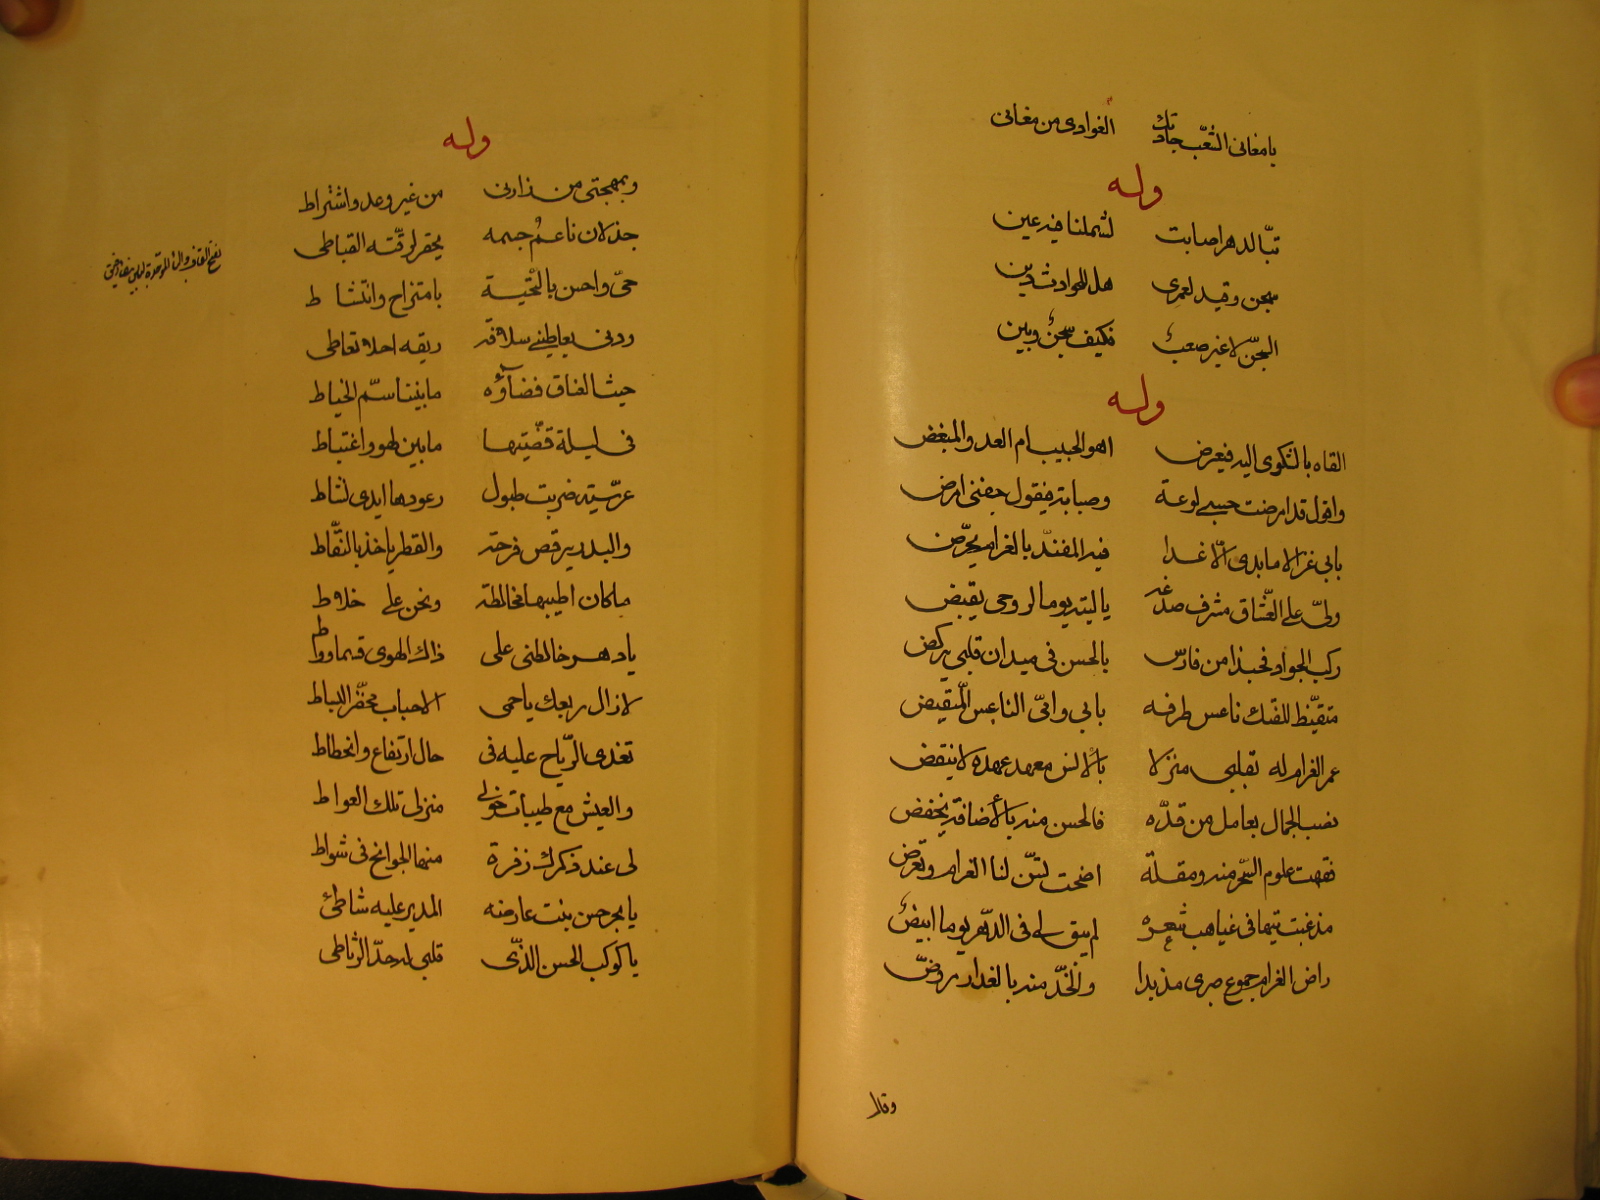 يا مغاني الشعب جادتك الغوادي من مغاني
وله
تبّا لدهر اصابت لشملنا فيه عين
سجن وقيد لعمرى هل للحوادث دين
السجنّ لا غير صعب فكيف سجن وبين
وله
القاه بالشكوى اليه فيعرض اهو الحبيب ام العدو المبغض
واقول قد امرضت جسمي لوعة وصبابة فيقول جفني امرض
بابي غزالا ما بدى الّا غدا فيه المفندّ بالغرام يحرّض
ولىّ على العشّاق مشرف صدغه ياليته يوما لروحى يقبض
ركب الجواد فحبذا من فارس بالحسن فى ميدان قلبي يركض
متيقّظ للفتك ناعس طرفه بابي وامّى الناعس المتيقض
عمر الغرام له بقلبي منزلا بالانس معهد عهده لا ينقض
نصب الجمال بعامل من قدّه فالحسن منه بالأضافة يخفض
فقهت علوم السّحر منه ومقلة اضحت تسنّ لنا الغرام وتفرض
مذ غبت تيها فى غياهب شعره لم يبق لى فى الدّهر يوما ابيض
راض الغرام جموع صبرى مذ بدا والخدّ منه بالعذار مروضّ
وقلا
وله
وبمهجتى من زارنى من غير وعد واشتراط
جذلان ناعم جسمه يحقر لرقّته القباطى
حىّ واحسن بالتّحية بامتزاج وانتشاط
ودنى يعاطينى سلافة ريقه احلا تعاطى
حيث العناق فضاؤه ما بيننا سمّ الخياط
فى ليلة قضّيتها ما بين لهو واغتباط
عرسيّة ضربت طبول رعودها ايدى نشاط
والبدر يرقص فرحة والقطر ياخذ بالنقّاط
ما كان اطيبها مخالطة ونحن على خلاط
يا دهر خالطنى على ذاك الهوى قسما وواط
لا زال ربعك يا حمى الاحباب مخضّر البساط
تغدى الرّياح عليه فى حال ارتفاع وانحطاط
والعيش مع طيبات منزلى تلك العواط
لى عند ذكرك زفرة منها الجوانح فى شواط
يا بحر حسن بنت عارضه المدير عليه شاطئ
يا كوكب الحسن الذّى قلبي له حدّ الرّباطى